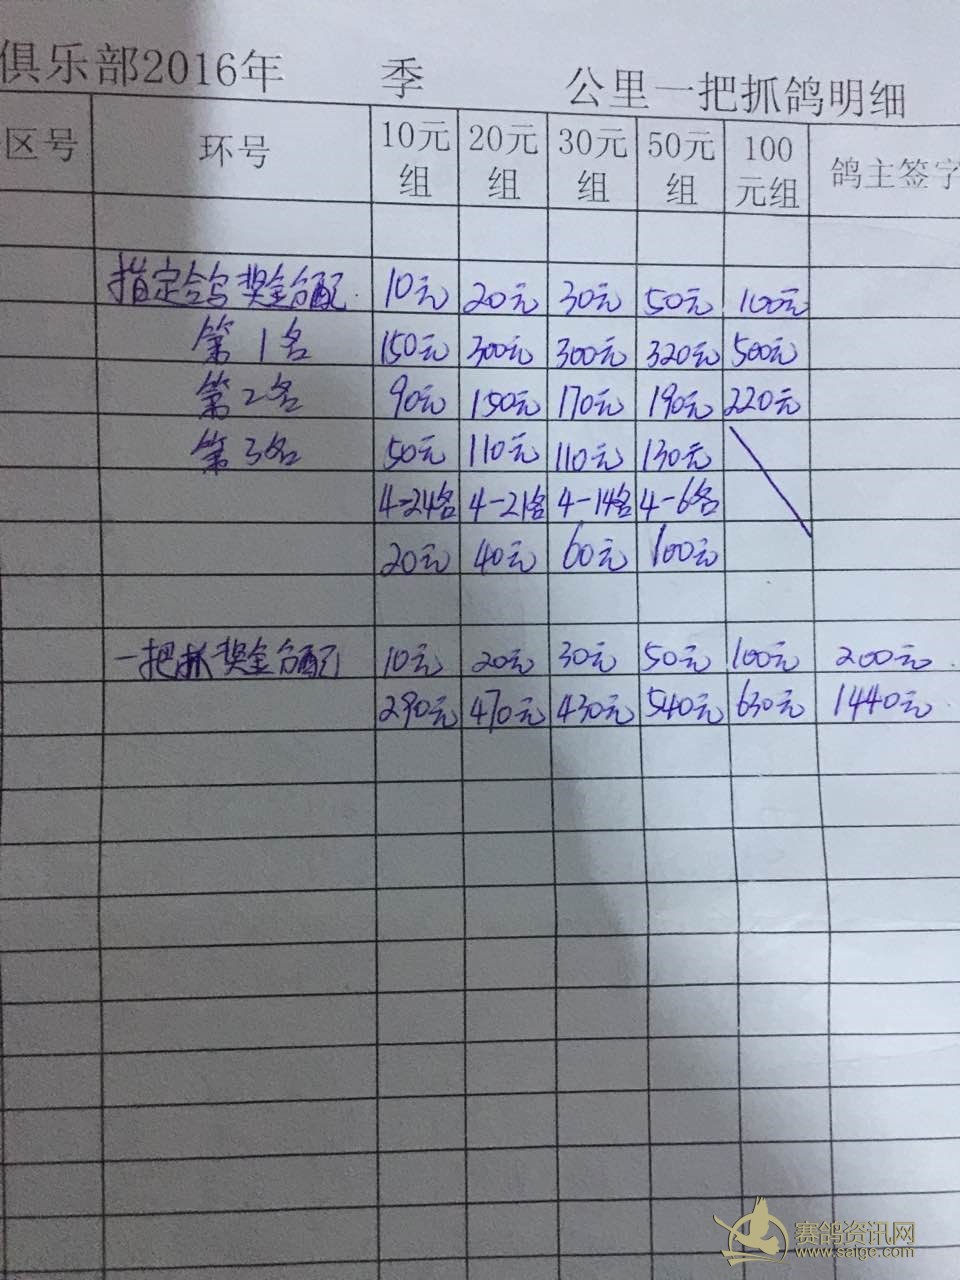 俱乐部2016年 季 公里一把抓鸽明细
区号 环号 10元组 20元组 30元组 50元组 100元组 鸽主签字
指定鸽奖金分配 10元 20元 30元 50元 100元
第1名 150元 300元 300元 320元 500元
第2名 90元 150元 170元 190元 220元
第3名 50元 110元 110元 130元
4-24名 4-21名 4-14名 4-6名
20元 40元 60元 100元
一把抓奖金分配 10元 20元 30元 50元 100元 200元
290元 470元 430元 540元 630元 1440元
赛鸽资讯网
www.saige.com